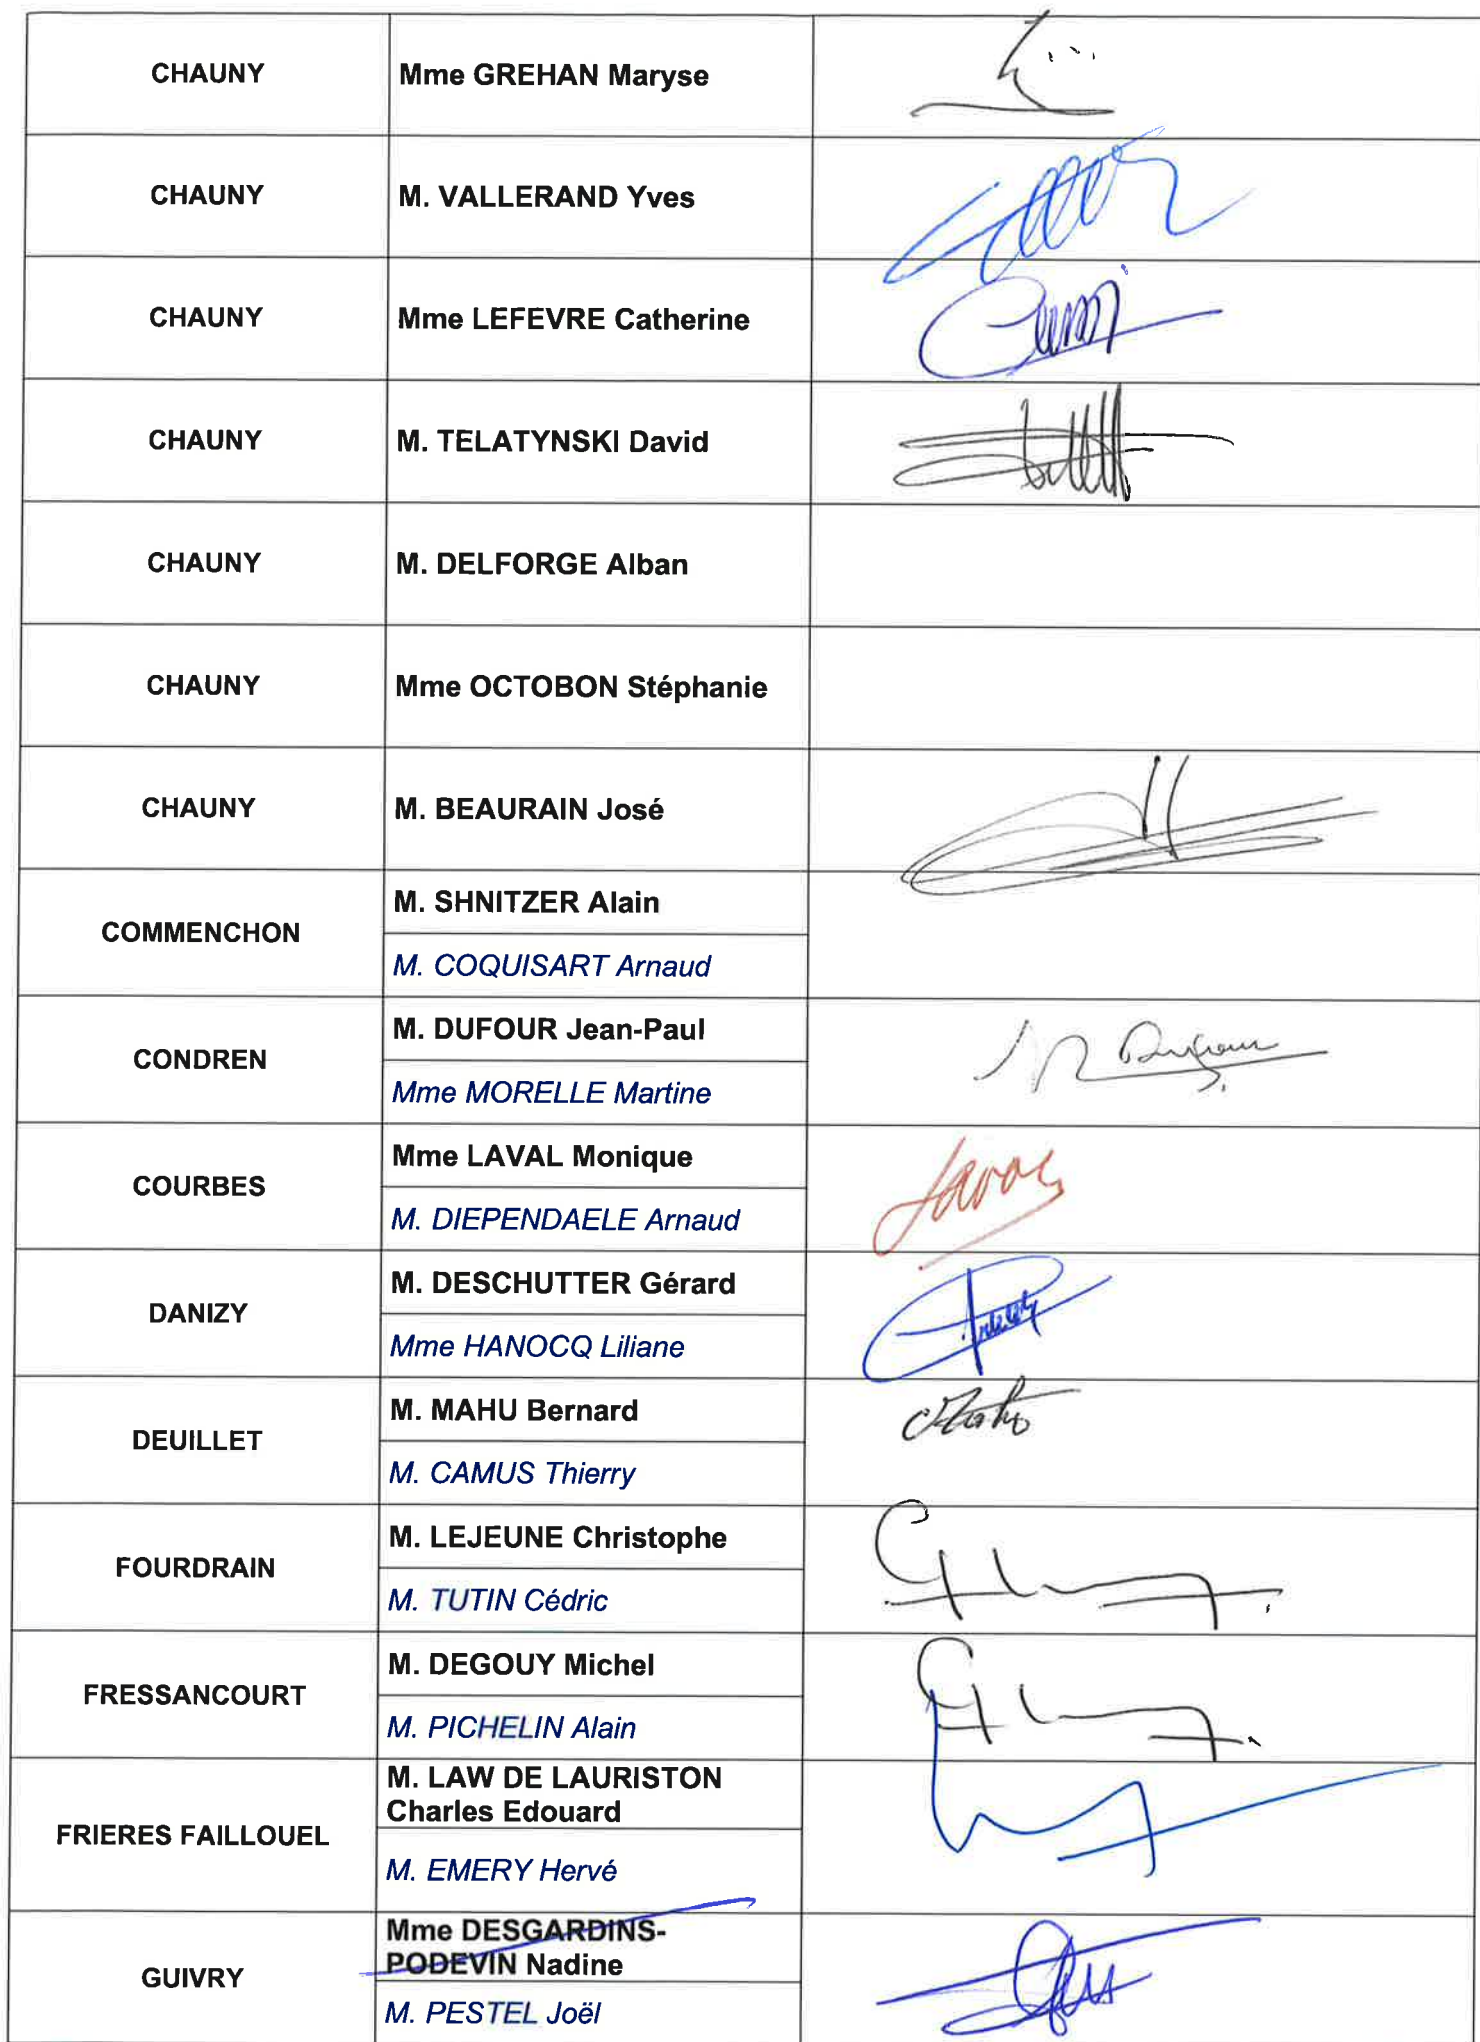 CHAUNY Mme GREHAN Maryse
CHAUNY M. VALLERAND Yves
CHAUNY Mme LEFEVRE Catherine
CHAUNY M. TELATYNSKI David
CHAUNY M. DELFORGE Alban
CHAUNY Mme OCTOBON Stéphanie
CHAUNY M. BEAURAIN José
COMMENCHON
M. SHNITZER Alain
M. COQUISART Arnaud
CONDREN
M. DUFOUR Jean-Paul
Mme MORELLE Martine
Dufour
COURBES
Mme LAVAL Monique
M. DIEPENDAELE Arnaud
Laval
DANIZY
M. DESCHUTTER Gérard
Mme HANOCQ Liliane
DEUILLET
M. MAHU Bernard
M. CAMUS Thierry
Mahu
FOURDRAIN
M. LEJEUNE Christophe
M. TUTIN Cédric
FRESSANCOURT
M. DEGOUY Michel
M. PICHELIN Alain
FRIERES FAILLOUEL
M. LAW DE LAURISTON
Charles Edouard
M. EMERY Hervé
GUIVRY
Mme DESGARDINS-
PODEVIN Nadine
M. PESTEL Joël